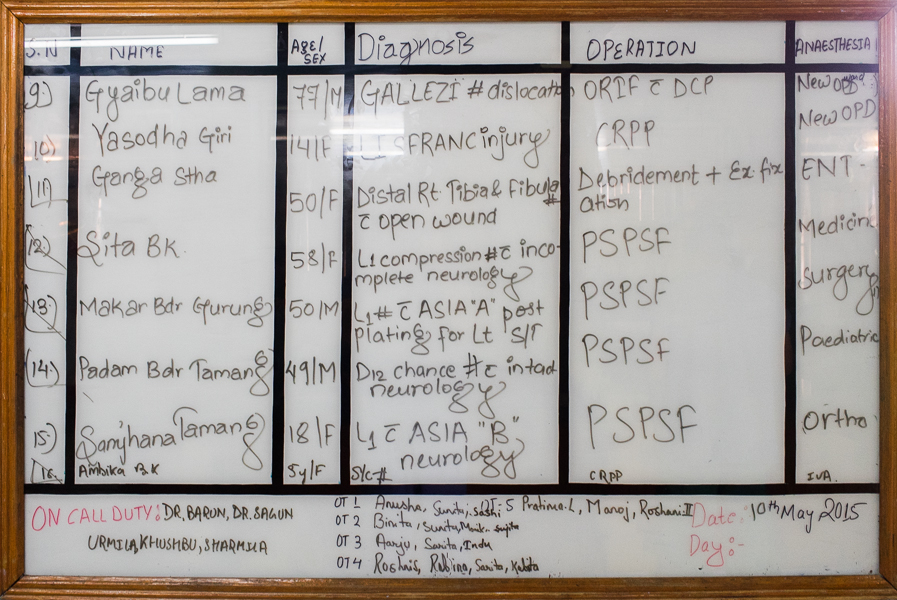 S.N NAME AGE/SEX Diagnosis OPERATION ANAESTHESIA
9.) Gyaibu Lama 77/M GALLEZI # dislocation ORIF c̄ DCP New OPD
New OPD
10) Yasodha Giri 14/F LISFRANC injury CRPP
11) Ganga Stha 50/F Distal Rt. Tibia & Fibula # c̄ open wound Debridement + Ex. fixation ENT -
Medicine
12.) Sita BK. 58/F L1 compression # c̄ incomplete neurology PSPSF
surgery
13.) Makar Bdr Gurung 50/M L1 # c̄ ASIA "A" post plating for Lt S/T PSPSF
Paediatric
14.) Padam Bdr Tamang 49/M D12 chance # c̄ intact neurology PSPSF
15.) Sanjhana Tamang 18/F L1 c̄ ASIA "B" neurology PSPSF Ortho
16. Ambika B.K 5y/F S/C # CRPP IVA.
ON CALL DUTY: DR. BARUN, DR. SAGUN
URMILA, KHUSHBU, SHARMILA
OT 1 Anusha, Sunita, OT-5 Pratima.L, Manoj, Roshani II
OT 2 Binita, Sunita, Sujita
OT 3 Aarju, Sarita, Indu
OT 4 Rubina, Sarita, Kabita
Date:- 10th May 2015
Day:-